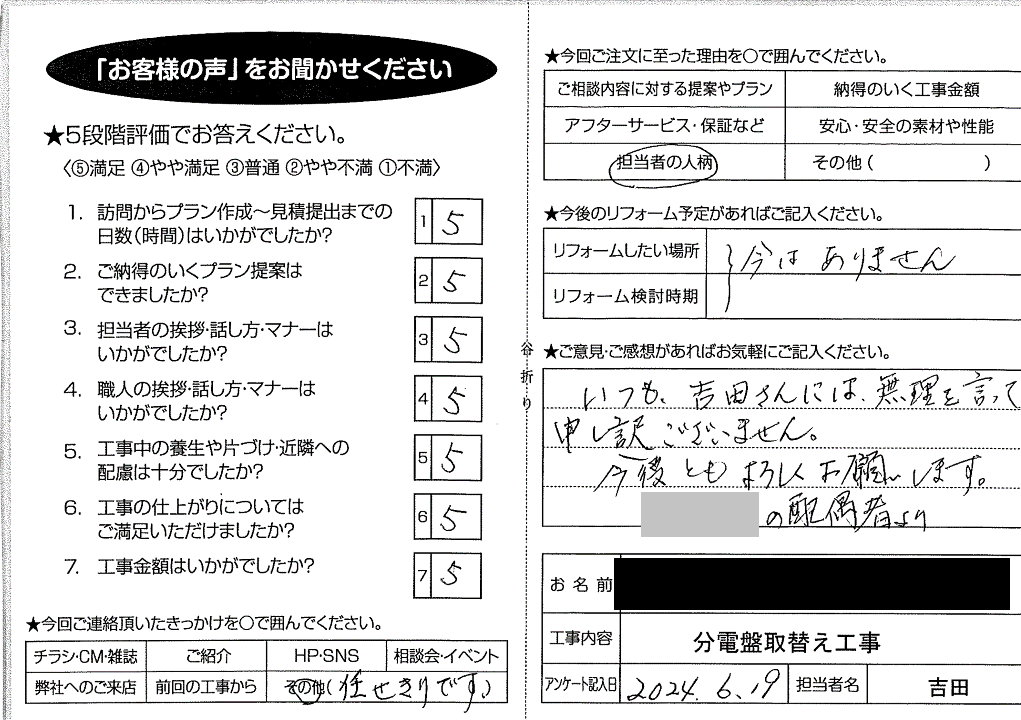 「お客様の声」をお聞かせください
★5段階評価でお答えください。
〈⑤満足 ④やや満足 ③普通 ②やや不満 ①不満〉
1. 訪問からプラン作成～見積提出までの
日数(時間)はいかがでしたか?
1 5
2. ご納得のいくプラン提案は
できましたか?
2 5
3. 担当者の挨拶・話し方・マナーは
いかがでしたか?
3 5
4. 職人の挨拶・話し方・マナーは
いかがでしたか?
4 5
5. 工事中の養生や片づけ・近隣への
配慮は十分でしたか?
5 5
6. 工事の仕上がりについては
ご満足いただけましたか?
6 5
7. 工事金額はいかがでしたか?
7 5
★今回ご連絡頂いたきっかけを○で囲んでください。
チラシ・CM・雑誌 ご紹介 HP・SNS 相談会・イベント
弊社へのご来店 前回の工事から その他(任せきりです。)
谷折り
★今回ご注文に至った理由を○で囲んでください。
ご相談内容に対する提案やプラン 納得のいく工事金額
アフターサービス・保証など 安心・安全の素材や性能
担当者の人柄 その他( )
★今後のリフォーム予定があればご記入ください。
リフォームしたい場所 今はありません
リフォーム検討時期
★ご意見・ご感想があればお気軽にご記入ください。
いつも、吉田さんには、無理を言って
申し訳ございません。
今後ともよろしくお願いします。
の配偶者より
お名前
工事内容 分電盤取替え工事
アンケート記入日 2024.6.19 担当者名 吉田